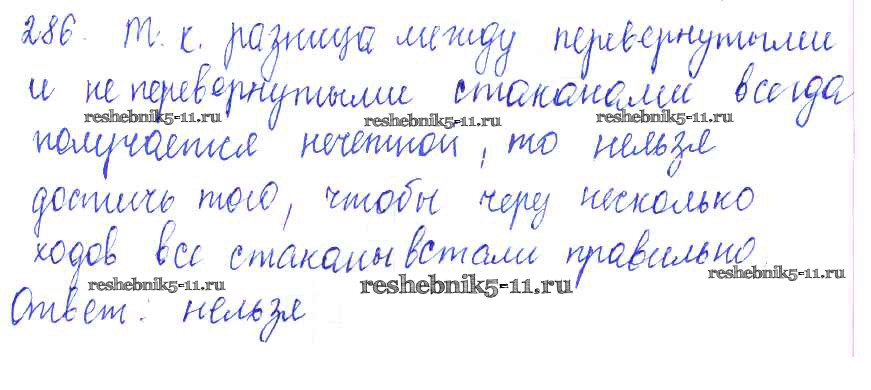 286. Т. к. разница между перевернутыми
и неперевернутыми стаканами всегда
reshebnik5-11.ru reshebnik5-11.ru reshebnik5-11.ru
получается нечетной, то нельзя
достичь того, чтобы через несколько
ходов все стаканы встали правильно
reshebnik5-11.ru reshebnik5-11.ru reshebnik5-11.ru
Ответ: нельзя